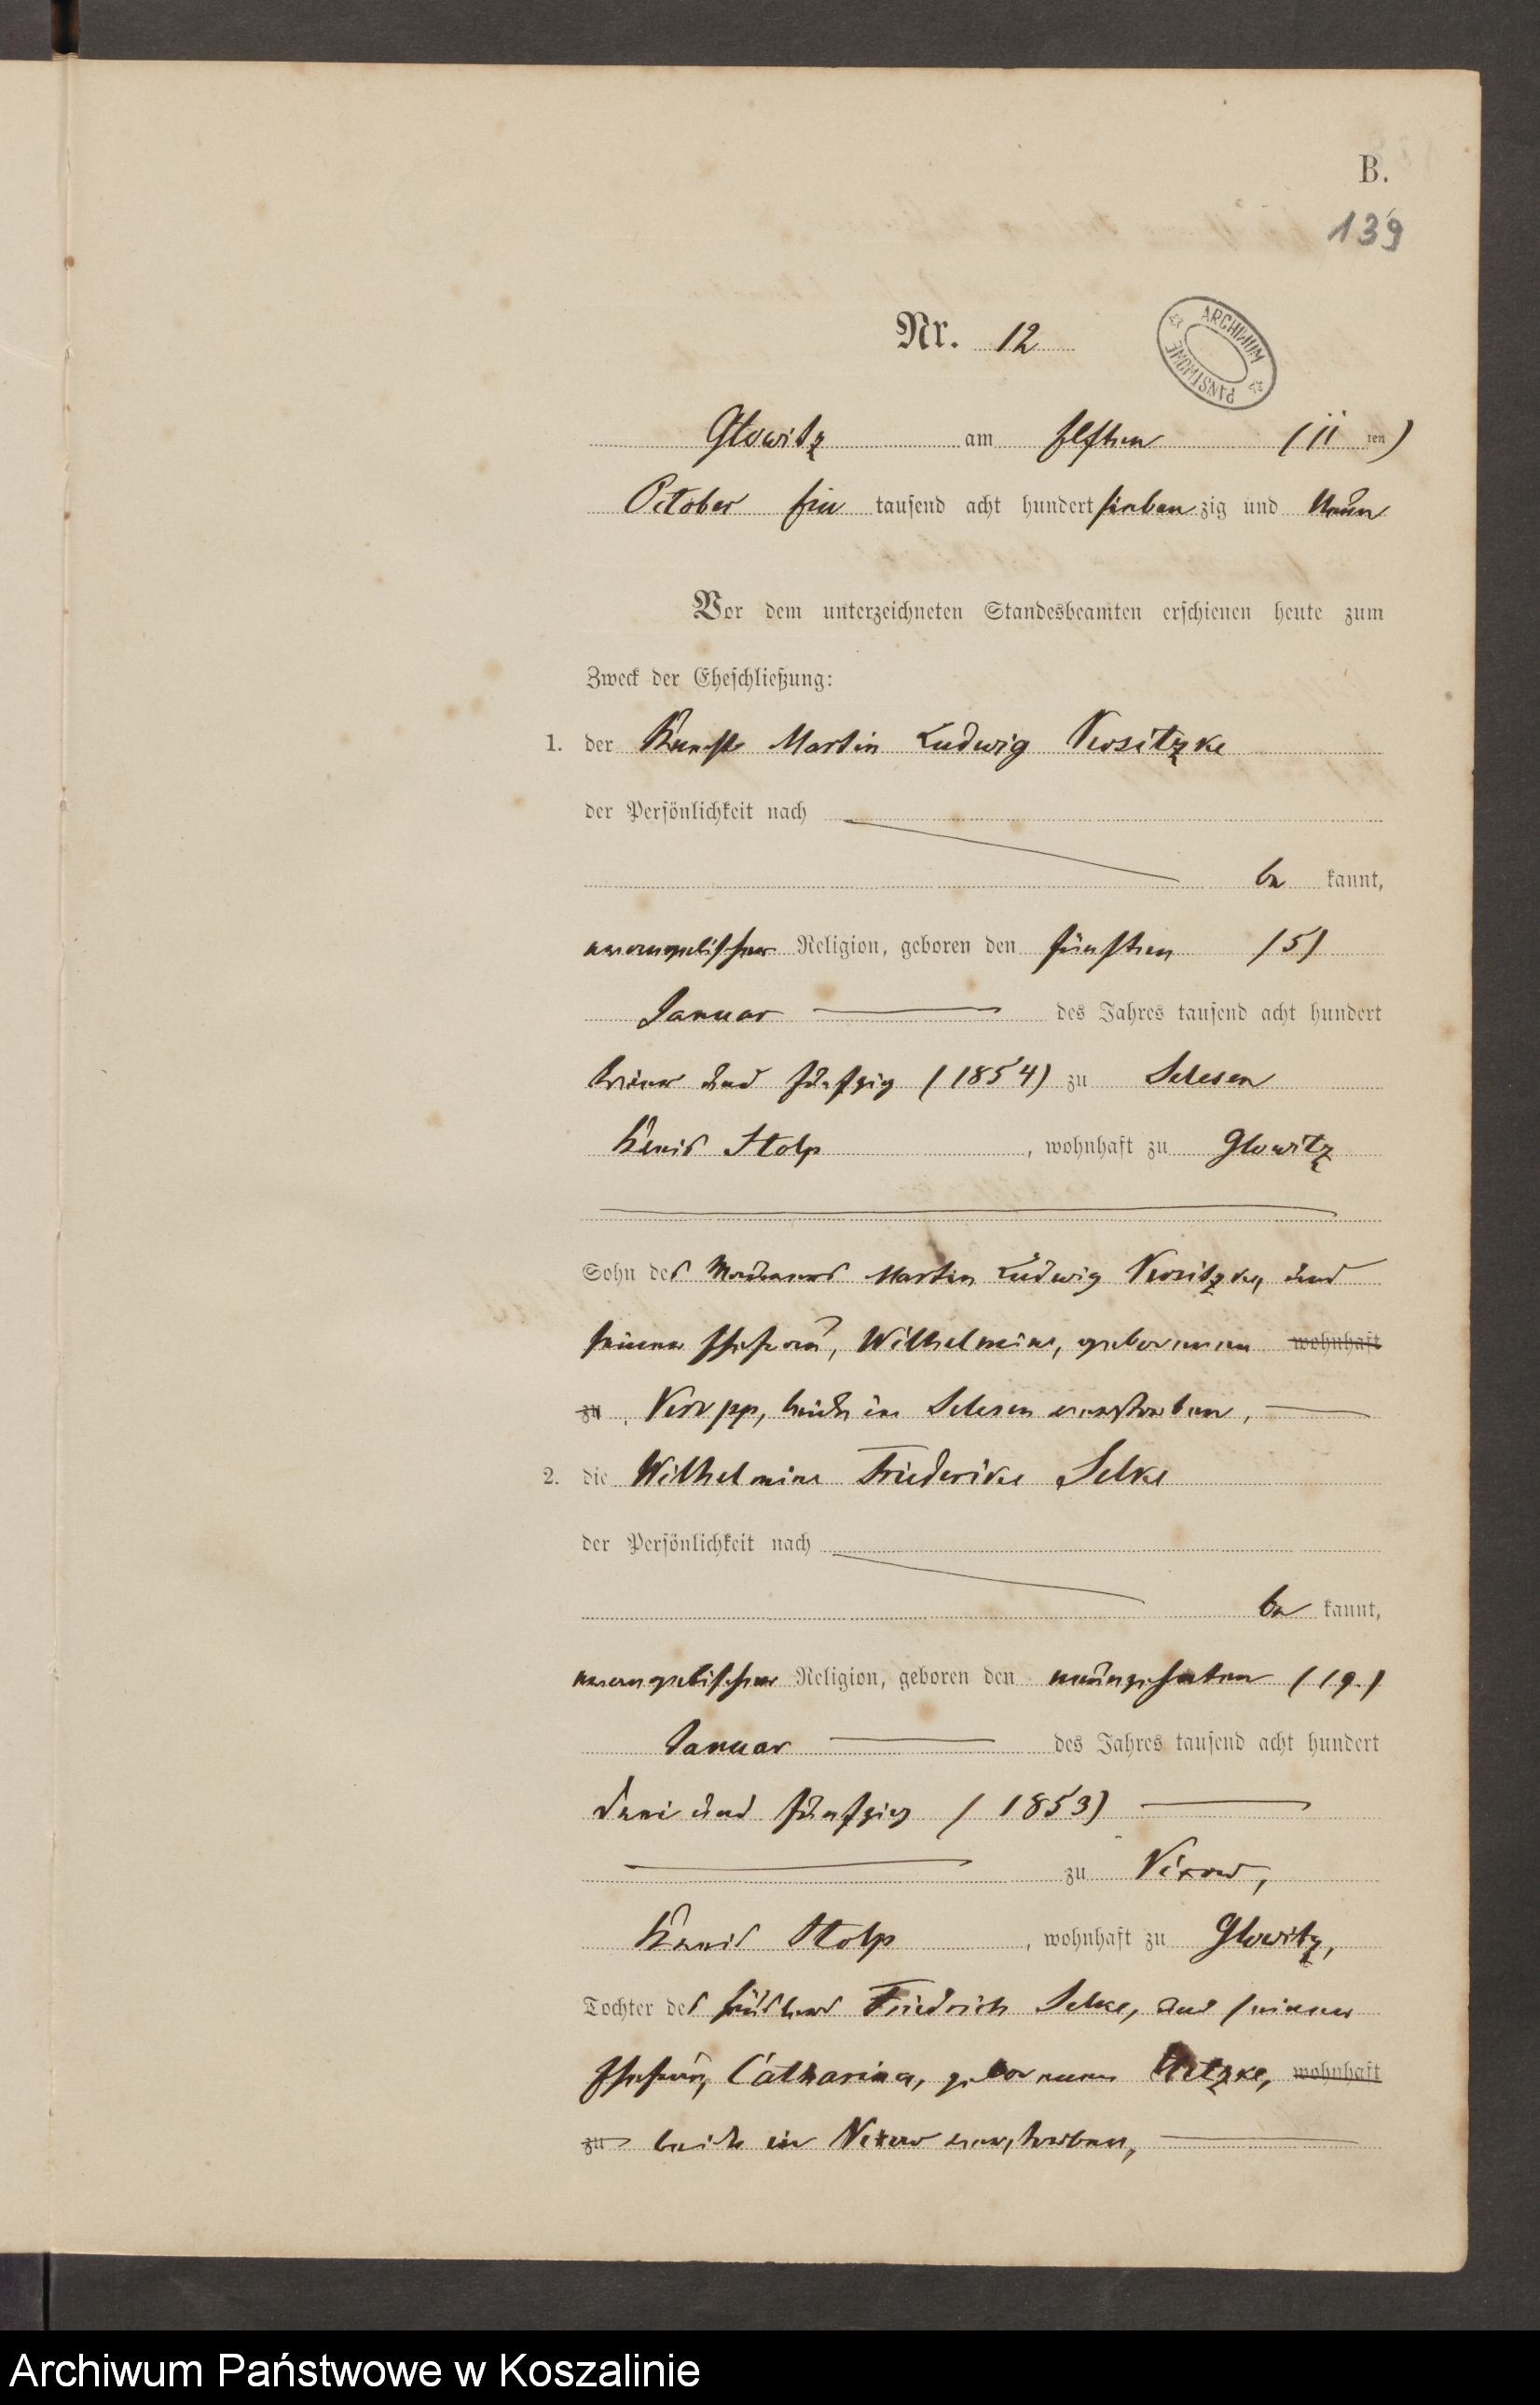 B.
139
Nr. 12
ARCHIWUM PAŃSTWOWE
Glowitz am Elften (11 ten)
October Ein tausend acht hundert sieben zig und Neun
Vor dem unterzeichneten Standesbeamten erschienen heute zum
Zweck der Eheschließung:
1. der Knecht Martin Ludwig Kositzke
der Persönlichkeit nach
be kannt,
evangelischer Religion, geboren den fünften (5)
Januar des Jahres tausend acht hundert
vier und fünfzig (1854) zu Selesen
Kreis Stolp, wohnhaft zu Glowitz
Sohn des Martin Ludwig und
seiner Ehefrau, Wilhelmine, geborenen wohnhaft
zu beide in Selesen verstorben,
2. die Wilhelmine Friederike Selke
der Persönlichkeit nach
be kannt,
evangelischer Religion, geboren den neunzehnten (19.)
Januar des Jahres tausend acht hundert
drei und fünfzig (1853)
zu Vixow,
Kreis Stolp, wohnhaft zu Glowitz,
Tochter des Friedrich Selke, und seiner
Ehefrau, Catharina, geborenen wohnhaft
zu beide in Vixow verstorben,
Archiwum Państwowe w Koszalinie